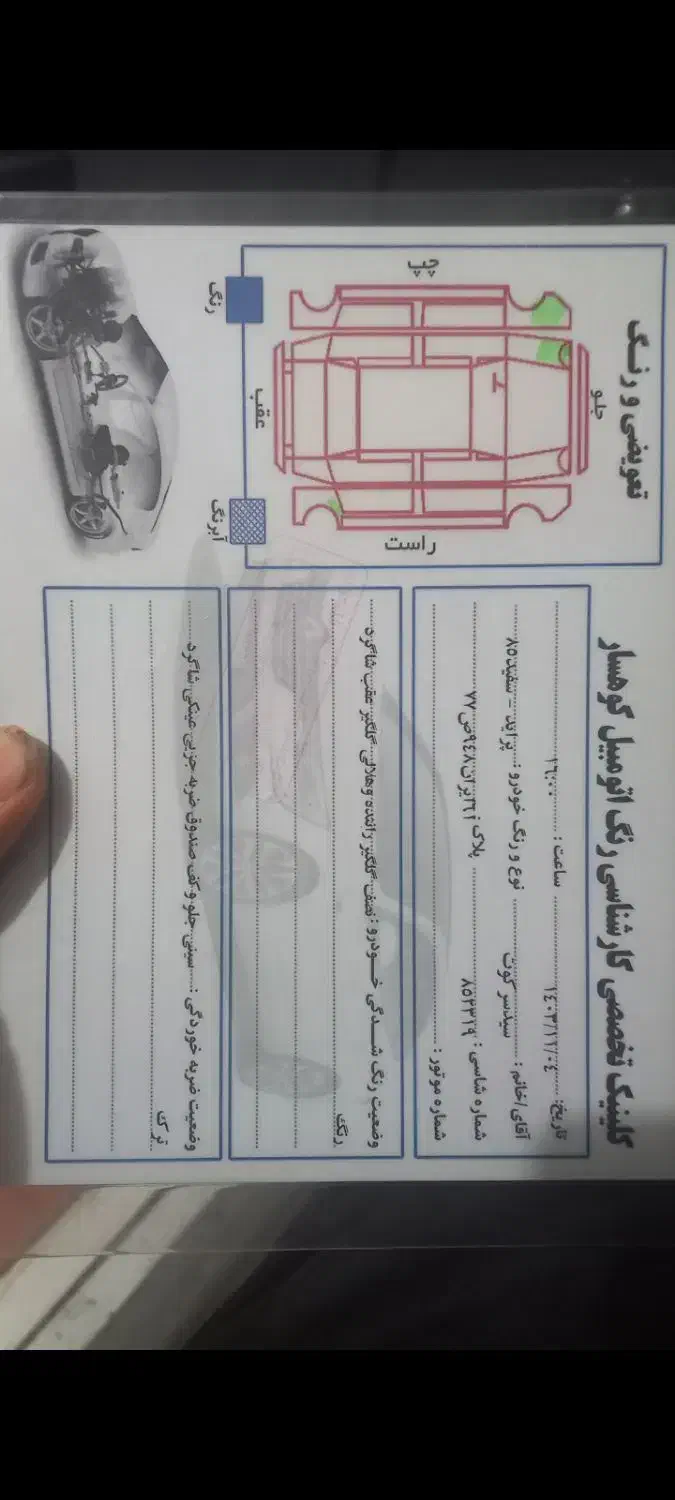 کلینیک تخصصی کارشناسی رنگ اتومبیل کوهسار
تاریخ: ١٤٠٣/١٢/٠٤ ساعت : ١٦:٠٠
آقای/خانم : سیدسر کوت نوع و رنگ خودرو : پراید - سفید ٨٥
شماره شاسی : ٨٥٢٣١٩ پلاک :
شماره موتور :
وضعیت رنگ شـدگی خـودرو : نصف گلگیر راننده وهلالی گلگیر عقب شاگرد
رنگ
وضعیت ضربه خوردگی : سینی جلو و کف صندوق ضربه جزیی عینکی شاگرد
ترک
تعویضی و رنـگ
جلو
چپ
راست
عقب
رنگ
آبرنگ